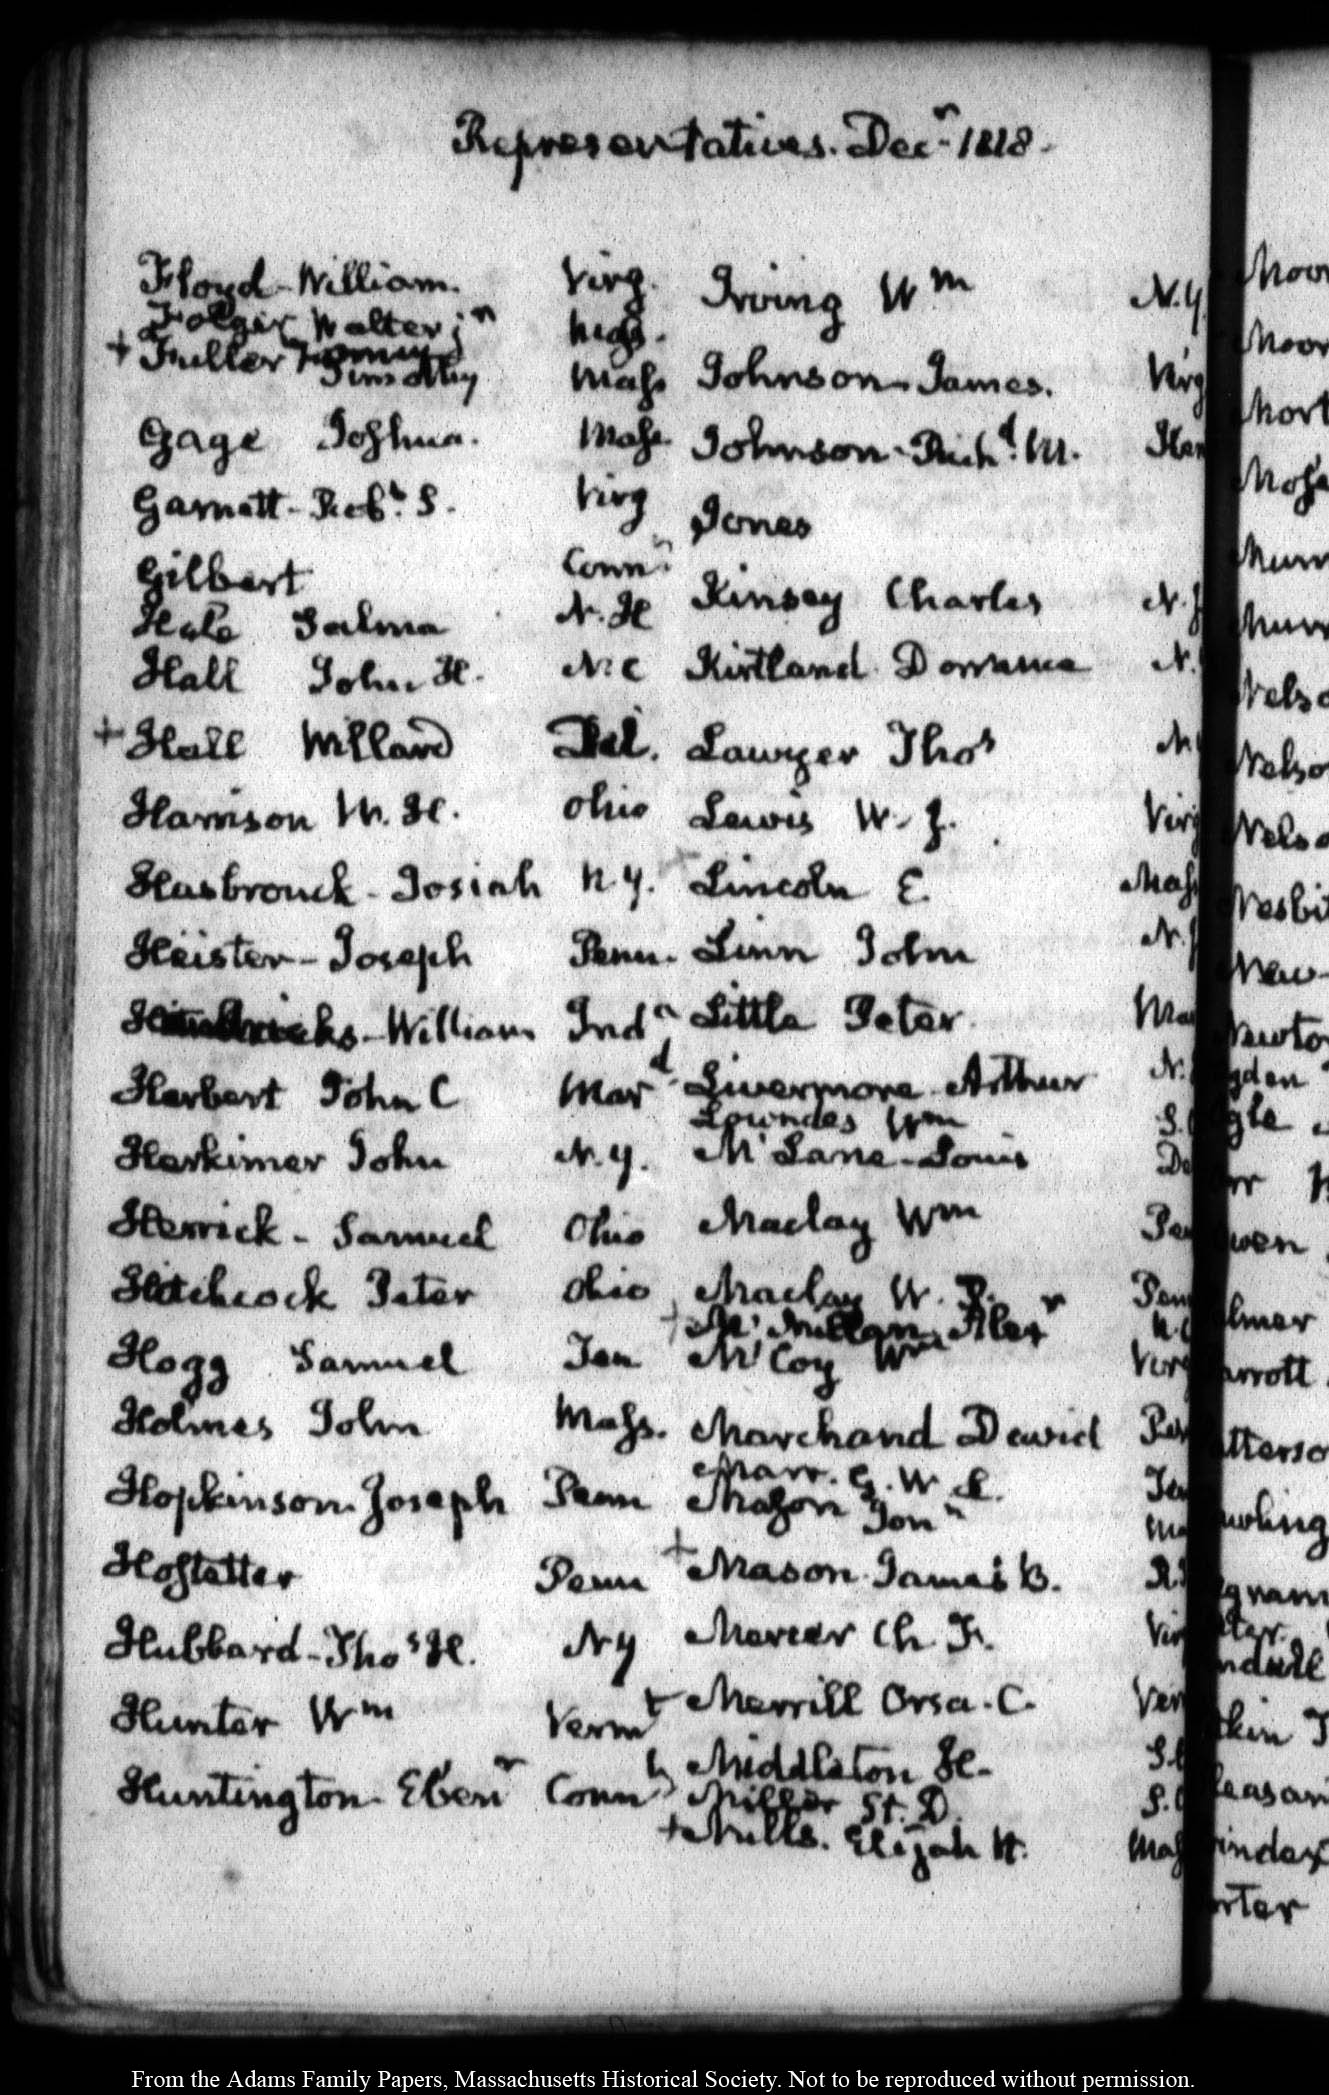 Representatives. Decr. 1818.
Floyd - William. Virg.
Folger Walter jr Mass.
+ Fuller
Timothy Mass
Gage Joshua. Mass.
Garnett - Robt. S. Virg
Gilbert Conn
Hale Salma N. H
Hall John H. N. C
+ Hall Willard Del.
Harrison W. H. Ohio
Hasbrouck - Josiah N. Y.
Heister - Joseph Penn.
Hendricks - William Inda
Herbert John C Mard
Herkimer John N. Y.
Herrick - Samuel Ohio
Hitchcock Peter Ohio
Hogg Samuel Ten
Holmes John Mass.
Hopkinson. Joseph Penn
Hostetter Penn
Hubbard - Thos H. N Y
Hunter Wm Vermt
Huntington - Ebenr Conn
Irving Wm N. Y.
Johnson - James. Virg
Johnson - Richd. M. Ken
Jones
Kinsey Charles N. J
Kirtland Dorrance N.
Lawyer Thos N
Lewis W. J. Virg
+ Lincoln E. Mass
Linn John N. J
Little Peter Ma
Livermore - Arthur N.
Lowndes Wm S. C
McLane - Louis De
Maclay Wm Pen
Maclay W. P. Pen
+ McMillan Alexr N. C
McCoy Wm Virg
Marchand David Pen
Marr. G. W. L. Ten
Mason Jonn Ma
+ Mason James B. R. I
Mercer Ch. F. Vir
Merrill Orsa. C. Ver
Middleton H. S. C
Miller St. D. S. C
+ Mills. Elijah H. Mass
Moor
Moor
Mort
Mose
Murr
Murr
Nelso
Nelso
Nelso
Nesbit
New
Newto
gden
gle
rr
wen
lmer
arrott
tterso
wling
gram
ter
ndall
kin
leasan
index
rter
From the Adams Family Papers, Massachusetts Historical Society. Not to be reproduced without permission.